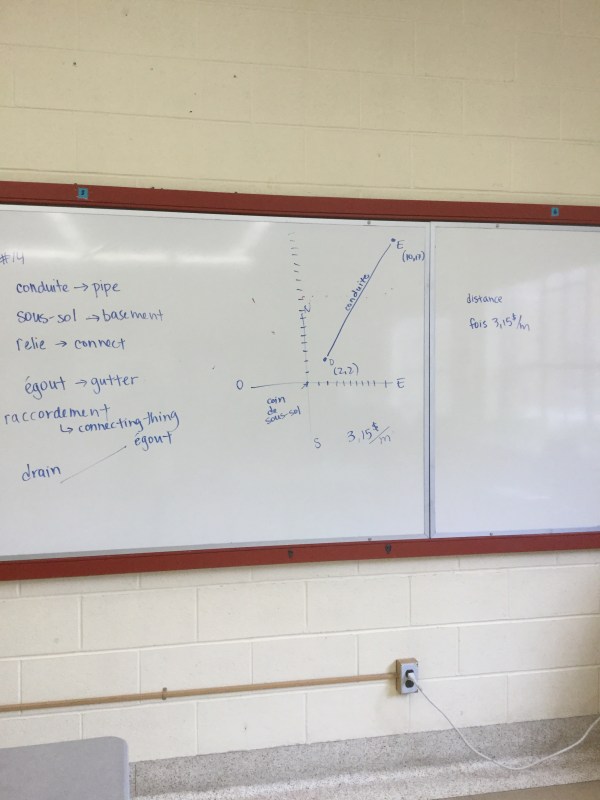 #14
conduite → pipe
sous-sol → basement
relie → connect
égout → gutter
raccordement
↳ connecting-thing
drain
égout
E
(10,17)
conduite
D
(2,2)
O
E
coin
de
sous-sol
S
3,15$/m
distance
fois 3,15$/m